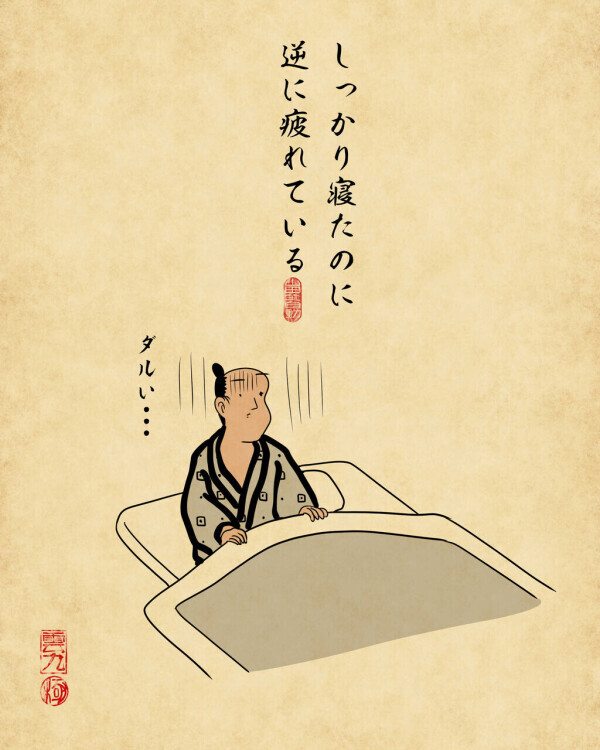 しっかり寝たのに
逆に疲れている
ダルい・・・